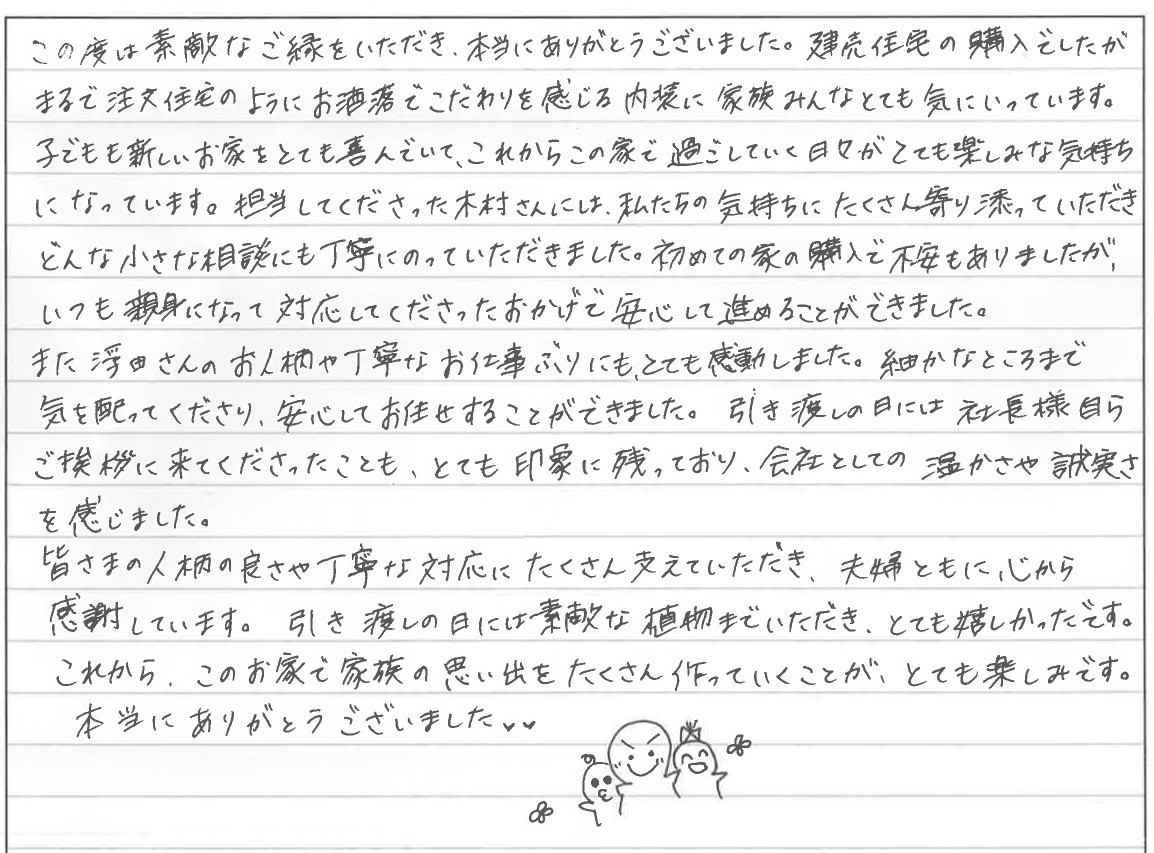 この度は素敵なご縁をいただき、本当にありがとうございました。建売住宅の購入でしたが
まるで注文住宅のようにお洒落でこだわりを感じる内装に家族みんなとても気にいっています。
子どもも新しいお家をとても喜んでいて、これからこの家で過ごしていく日々がとても楽しみな気持ち
になっています。担当してくださった木村さんには、私たちの気持ちにたくさん寄り添っていただき
どんな小さな相談にも丁寧にのっていただきました。初めての家の購入で不安もありましたが、
いつも親身になって対応してくださったおかげで安心して進めることができました。
また浮田さんのお人柄や丁寧なお仕事ぶりにも、とても感動しました。細かなところまで
気を配ってくださり、安心してお任せすることができました。引き渡しの日には社長様自ら
ご挨拶に来てくださったことも、とても印象に残っており、会社としての温かさや誠実さ
を感じました。
皆さまの人柄の良さや丁寧な対応にたくさん支えていただき、夫婦ともに心から
感謝しています。引き渡しの日には素敵な植物までいただき、とても嬉しかったです。
これから、このお家で家族の思い出をたくさん作っていくことが、とても楽しみです。
本当にありがとうございました♥♥